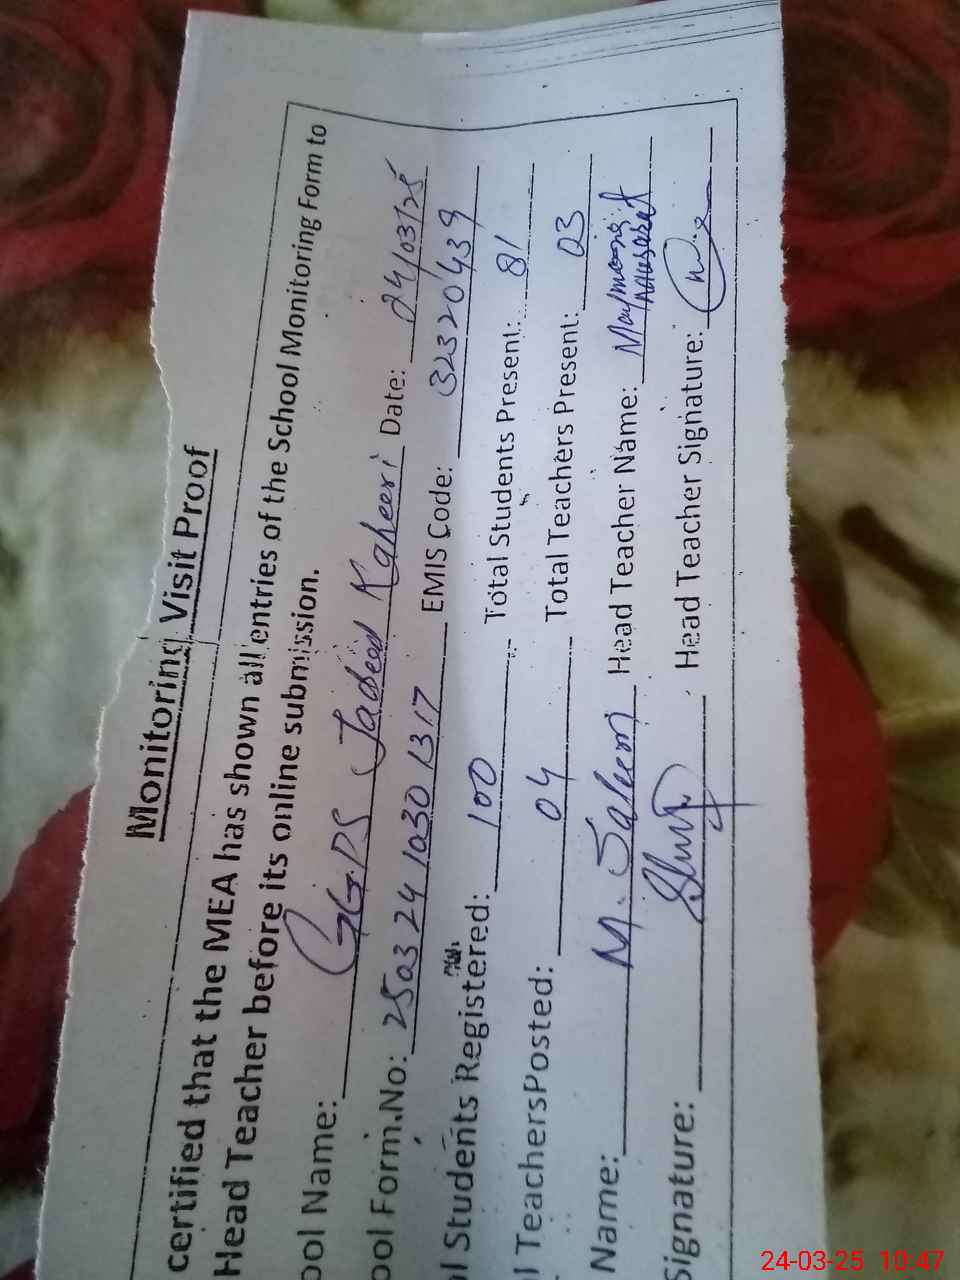 Monitoring Visit Proof
certified that the MEA has shown all entries of the School Monitoring Form to
Head Teacher before its online submission.
ool Name: GGPS Jadeed Kaheeri Date: 24/03/25
ool Form.No: 250324 1030 1317 EMIS Code: 32320439
l Students Registered: 100 Total Students Present: 81
l TeachersPosted: 04 Total Teachers Present: 03
Name: M. Saleem Head Teacher Name: Maymoona
Signature: Head Teacher Signature:
24-03-25 10:47